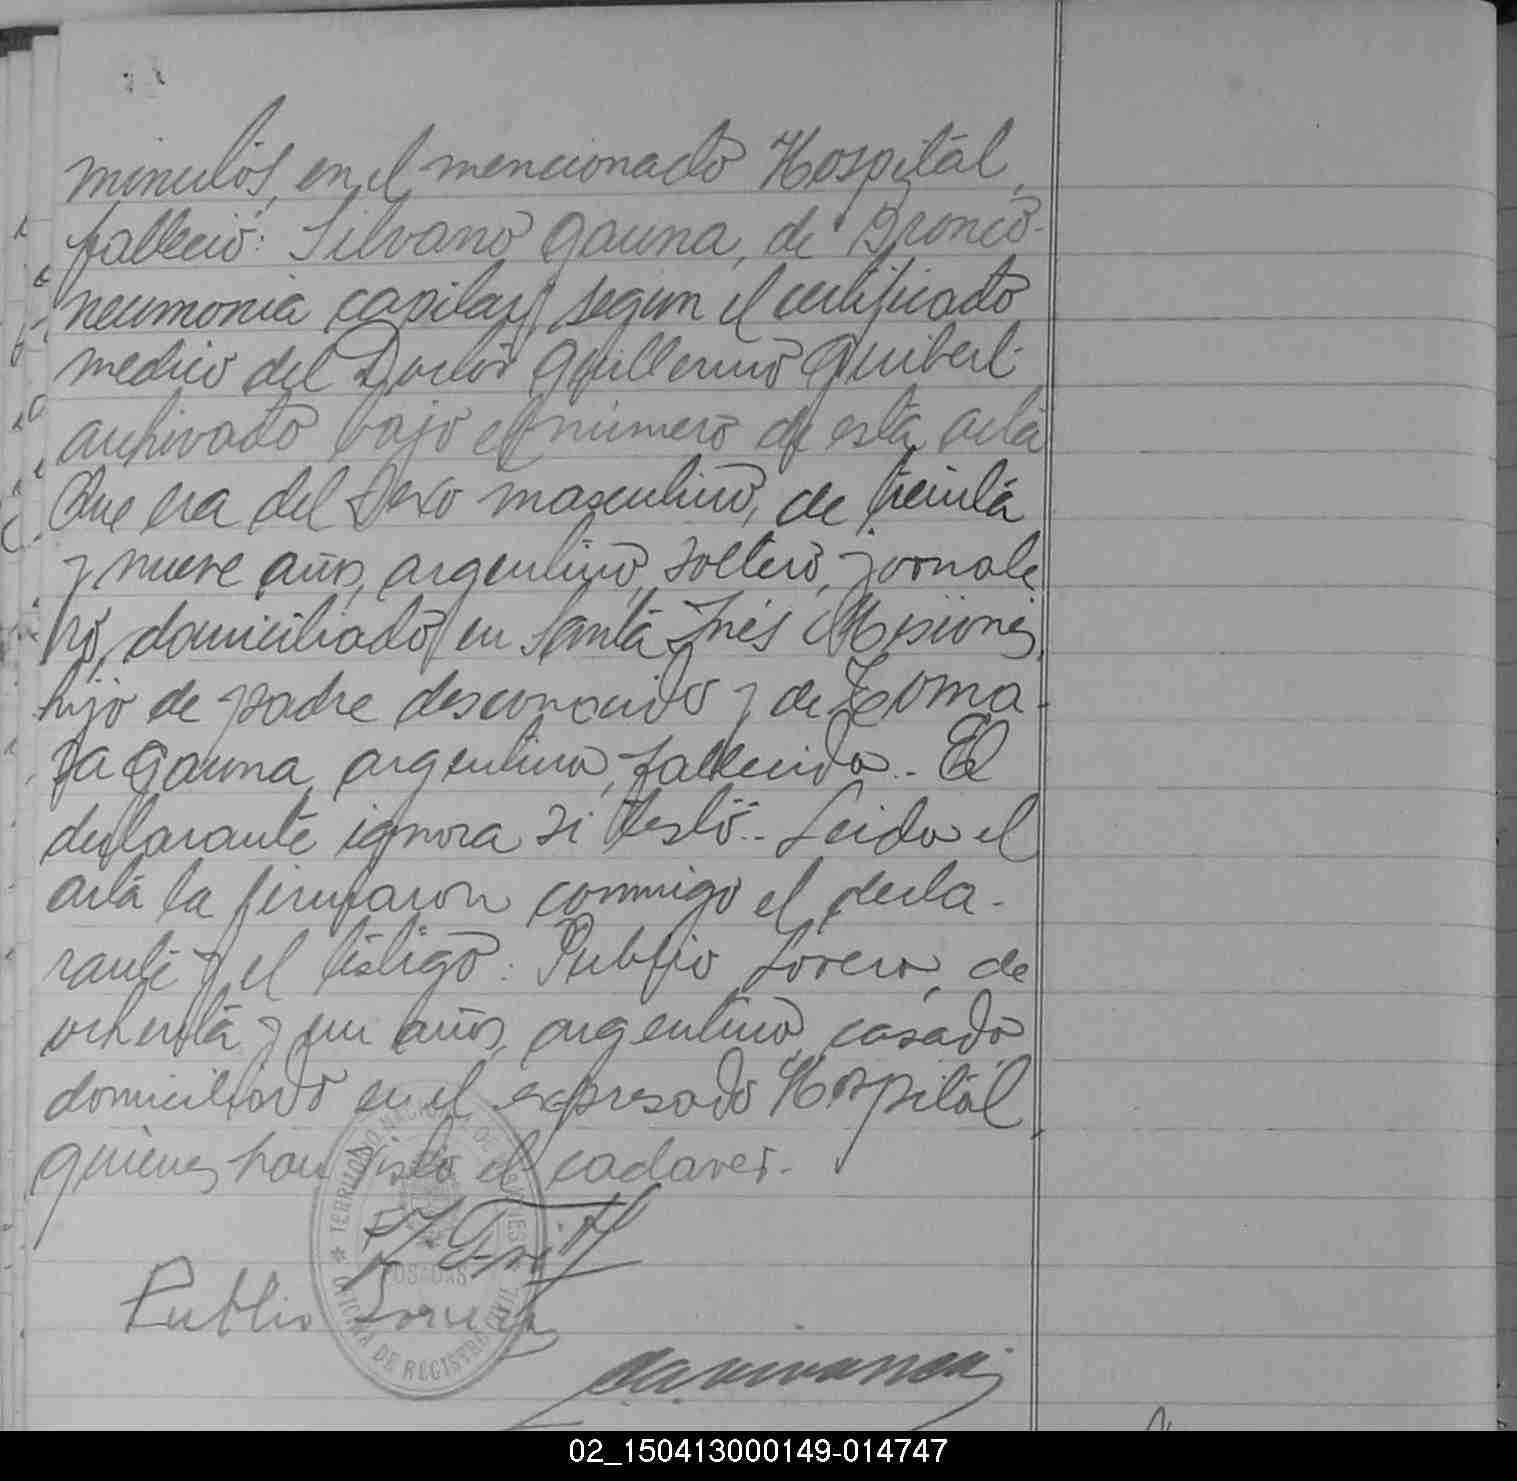 minutos, en el mencionado Hospital,
falleció: Silvano Gauna, de Bronco-
neumonia capilar, segun el certificado
medico del Doctor Guillermo Guibert
archivado bajo el número de esta acta
Que era del sexo masculino, de treinta
y nueve años, argentino, soltero, jornale
ro, domiciliado en Santa Inés Misiones,
hijo de padre desconocido y de Toma-
sa Gauna, argentina, fallecida.- El
declarante ignora si testó.- Leida el
acta la firmaron conmigo el decla-
rante y el testigo: Publio Lovera, de
ochenta y un años, argentino casado
domiciliado en el expresado Hospital,
quienes han visto el cadaver.-
TERRITORIO NACIONAL DE MISIONES
POSADAS
OFICINA DE REGISTRO CIVIL
Publio
02_150413000149-014747